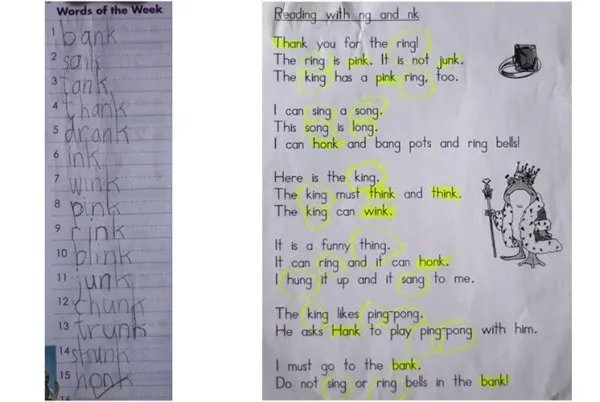 Words of the Week
1 bank
2 sank
3 tank
4 thank
5 drank
6 ink
7 wink
8 pink
9 rink
10 blink
11 junk
12 chunk
13 trunk
14 skunk
15 honk
Reading with ng and nk
Thank you for the ring!
The ring is pink. It is not junk.
The king has a pink ring, too.
I can sing a song.
This song is long.
I can honk and bang pots and ring bells!
Here is the king.
The king must think and think.
The king can wink.
It is a funny thing.
It can ring and it can honk.
I hung it up and it sang to me.
The king likes ping-pong.
He asks Hank to play ping-pong with him.
I must go to the bank.
Do not sing or ring bells in the bank!